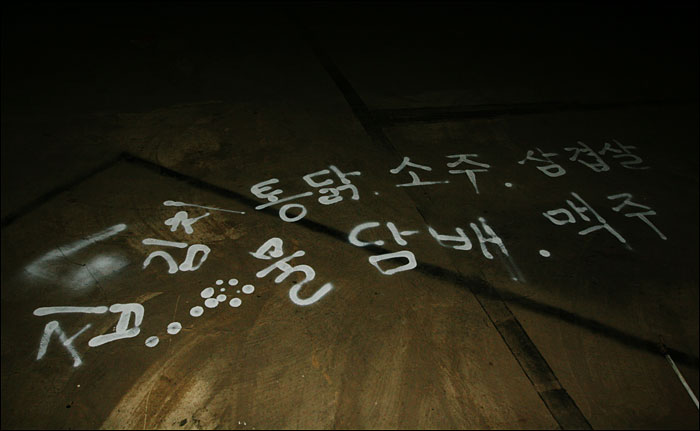 김치 통닭. 소주. 삼겹살
집...... 물 담배. 맥주